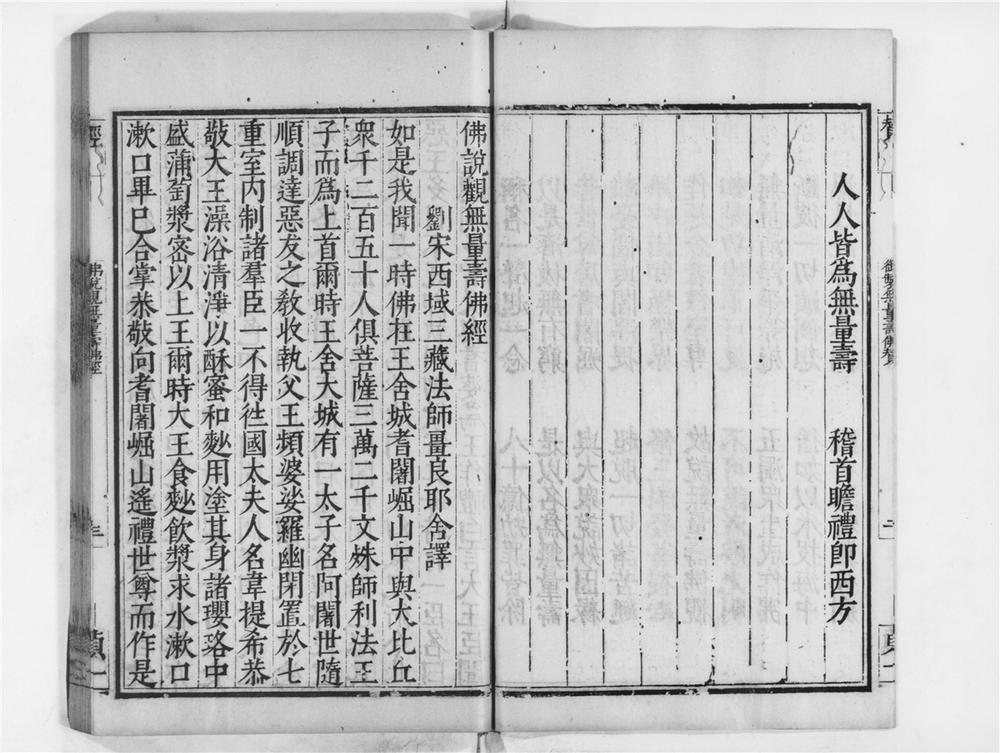 人人皆爲無量壽　稽首瞻禮卽西方
佛說觀無量壽佛經
劉宋西域三藏法師畺良耶舍譯
如是我聞一時佛在王舍城耆闍崛山中與大比丘
衆千二百五十人俱菩薩三萬二千文殊師利法王
子而爲上首爾時王舍大城有一太子名阿闍世隨
順調達惡友之教收執父王頻婆娑羅幽閉置於七
重室內制諸羣臣一不得徃國太夫人名韋提希恭
敬大王澡浴清淨以酥蜜和麨用塗其身諸瓔珞中
盛蒲萄漿密以上王爾時大王食麨飲漿求水漱口
漱口畢已合掌恭敬向耆闍崛山遙禮世尊而作是